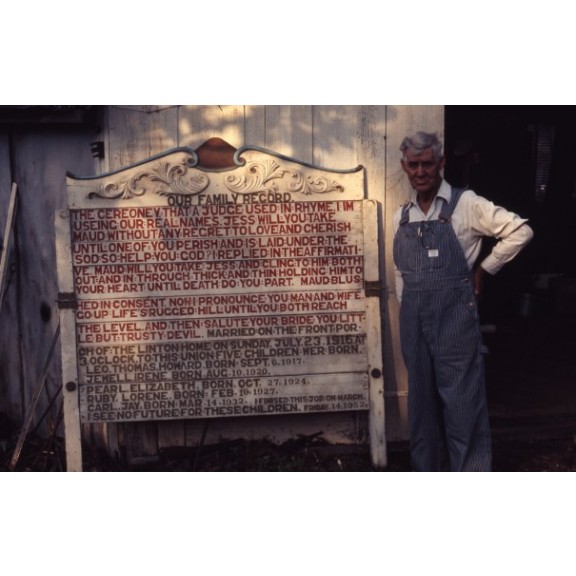 OUR FAMILY RECORD
THE CEREONEY THAT A JUDGE USED IN RHYME, I'M
USEING OUR REAL NAMES. JESS WILL YOU TAKE
MAUD WITHOUT ANY REGRET TO LOVE AND CHERISH
UNTIL ONE OF YOU PERISH AND IS LAID UNDER THE
SOD SO HELP YOU GOD? I REPLIED IN THE AFFIRMATI-
VE. MAUD WILL YOU TAKE JESS AND CLING TO HIM BOTH
OUT AND IN THROUGH THICK AND THIN HOLDING HIM TO
YOUR HEART UNTIL DEATH DO YOU PART. MAUD BLUS-
HED IN CONSENT. NOW I PRONOUNCE YOU MAN AND WIFE.
GO UP LIFE'S RUGGED HILL UNTIL YOU BOTH REACH
THE LEVEL, AND THEN SALUTE YOUR BRIDE YOU LITT-
LE BUT TRUSTY DEVIL. MARRIED ON THE FRONT POR-
CH OF THE LINTON HOME ON SUNDAY, JULY 23, 1916 AT
3 OCLOCK. TO THIS UNION FIVE CHILDREN WER BORN.
LEO, THOMAS, HOWARD, BORN SEPT. 6, 1917.
JEWELL IRENE. BORN AUG. 10, 1920.
PEARL ELIZABETH, BORN. OCT. 27, 1924.
RUBY, LORENE, BORN: FEB. 10, 1927.
CARL, JAY, BORN MAR. 14, 1932. I FINISED THIS JOB ON MARCH.
I SEE NO FUTURE FOR THESE CHILDREN. FRIDAY 14, 1952.